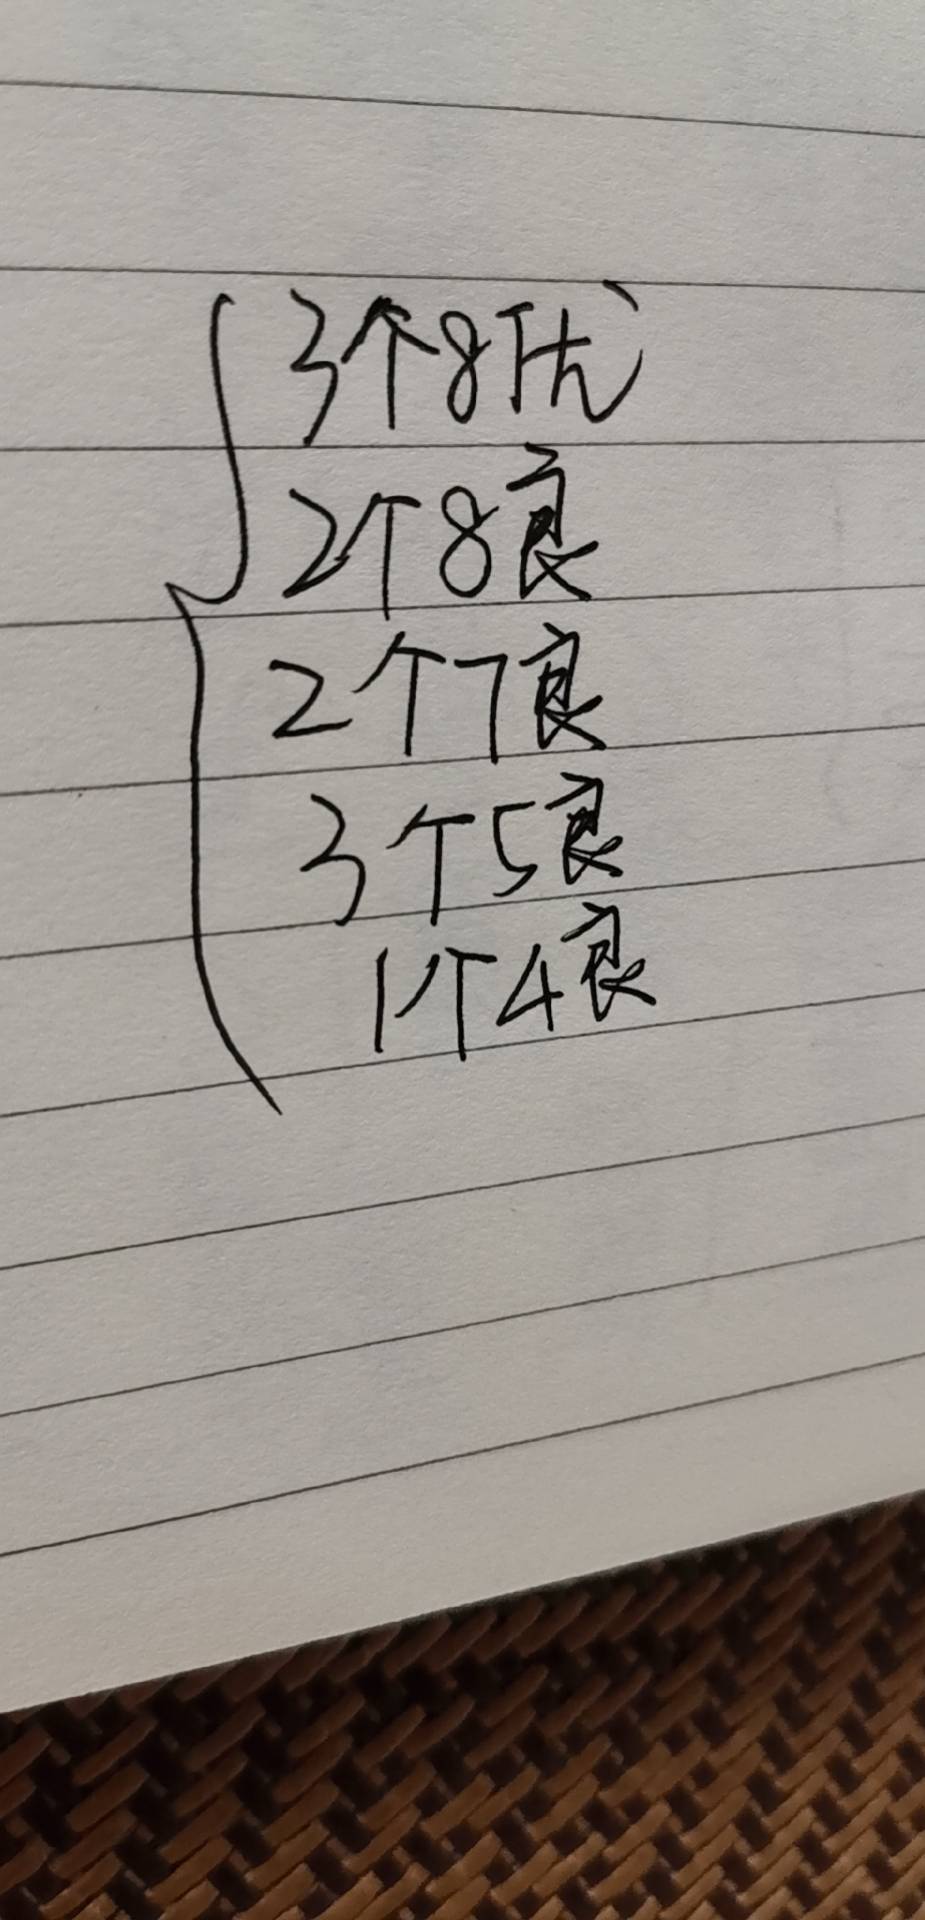 3个8优
2个8良
2个7良
3个5良
1个4良